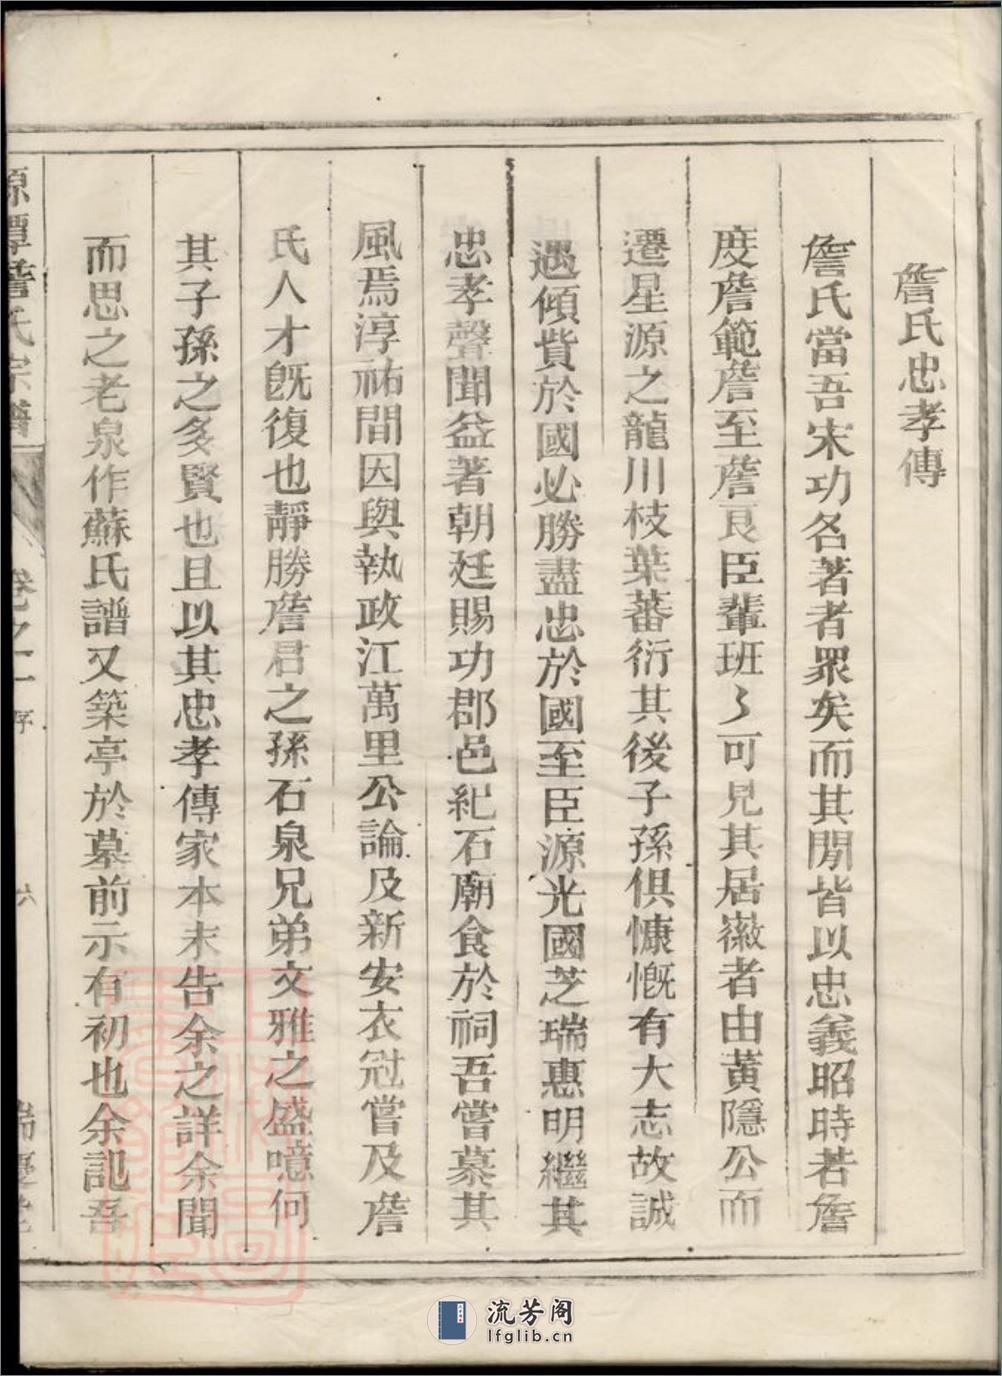 詹氏忠孝傳
詹氏當吾宋功名著者眾矣而其閒皆以忠義昭時若詹
度詹範詹至詹良臣輩班々可見其居徽者由黃隱公而
遷星源之龍川枝葉蕃衍其後子孫俱慷慨有大志故誠
遇傾貲於國必勝盡忠於國至臣源光國芝瑞惠明繼其
忠孝聲聞益著朝廷賜功郡邑紀石廟食於祠吾嘗慕其
風焉淳祐間因與執政江萬里公論及新安衣冠嘗及詹
氏人才旣復也靜勝詹君之孫石泉兄弟文雅之盛噫何
其子孫之多賢也且以其忠孝傳家本末告余之詳余聞
而思之老泉作蘇氏譜又築亭於墓前示有初也余記吾
源潭詹氏宗譜 卷之一 序 六
流芳阁
lfglib.cn